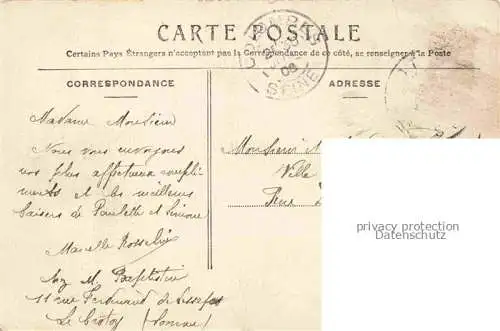 CARTE POSTALE
Certains Pays Étrangers n'acceptent pas la Correspondance de ce côté, se renseigner à la Poste
CORRESPONDANCE
ADRESSE
Madame Monsieur
Nous vous envoyons
nos plus affectueux compli
ments et les meilleurs
baisers de Paulette et Simone
Marcelle
chez M. Baptistin
11 rue Ferdinand de Lesseps
Le Crotoy (Somme)
Monsieur
Ville
Rue
SEINE
08
privacy protection
Datenschutz